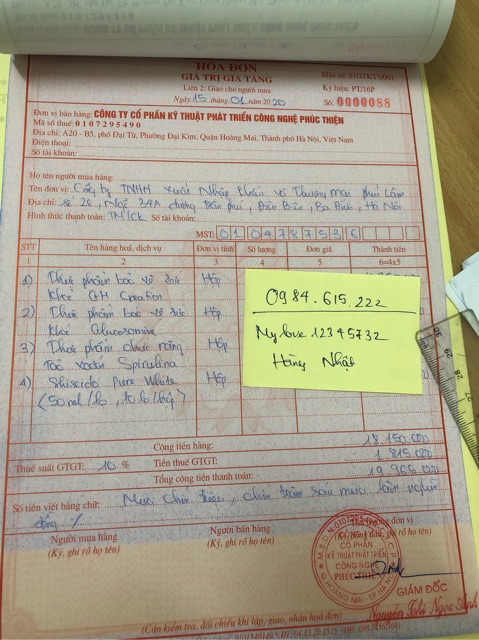 HÓA ĐƠN
GIÁ TRỊ GIA TĂNG
Liên 2: Giao cho người mua
Ngày 15 tháng 01 năm 2020
Mẫu số: 01GTKT3/001
Ký hiệu: PT/16P
Số: 0000088
Đơn vị bán hàng: CÔNG TY CỔ PHẦN KỸ THUẬT PHÁT TRIỂN CÔNG NGHỆ PHÚC THIỆN
Mã số thuế: 0107295490
Địa chỉ: A20 - B5, phố Đại Từ, Phường Đại Kim, Quận Hoàng Mai, Thành phố Hà Nội, Việt Nam
Điện thoại:
Số tài khoản:
Họ tên người mua hàng:
Tên đơn vị: Công ty TNHH xuất Nhập khẩu và Thương mại phúc Lâm
Địa chỉ: số 20, Ngõ 34A đường Ba Đình, Hà Nội
Hình thức thanh toán: TM/CK Số tài khoản:
MST: 0104787536
STT Tên hàng hoá, dịch vụ Đơn vị tính Số lượng Đơn giá Thành tiền
1 2 3 4 5 6=4x5
1) Thực phẩm bảo vệ sức Hộp
khoẻ GH Creation
2) Thực phẩm bảo vệ sức Hộp
khoẻ Glucosamine
3) Thực phẩm chức năng Hộp
Tảo xoắn Spirulina
4) Shiseido pure White Hộp
(50ml/lọ, 10 lọ/hộp)
0984.615.222
My love 12345732
Hàng Nhật
Cộng tiền hàng: 18.150.000
Thuế suất GTGT: 10 % Tiền thuế GTGT: 1.815.000
Tổng cộng tiền thanh toán: 19.965.000
Số tiền viết bằng chữ: Mười chín triệu, chín trăm sáu mươi lăm nghìn
đồng
Người mua hàng
(Ký, ghi rõ họ tên)
Người bán hàng
(Ký, ghi rõ họ tên)
CỔ PHẦN
KỸ THUẬT PHÁT TRIỂN
CÔNG NGHỆ
PHÚC THIỆN
GIÁM ĐỐC
Nguyễn Thị Ngọc Anh
(Cần kiểm tra, đối chiếu khi lập, giao, nhận hoá đơn)